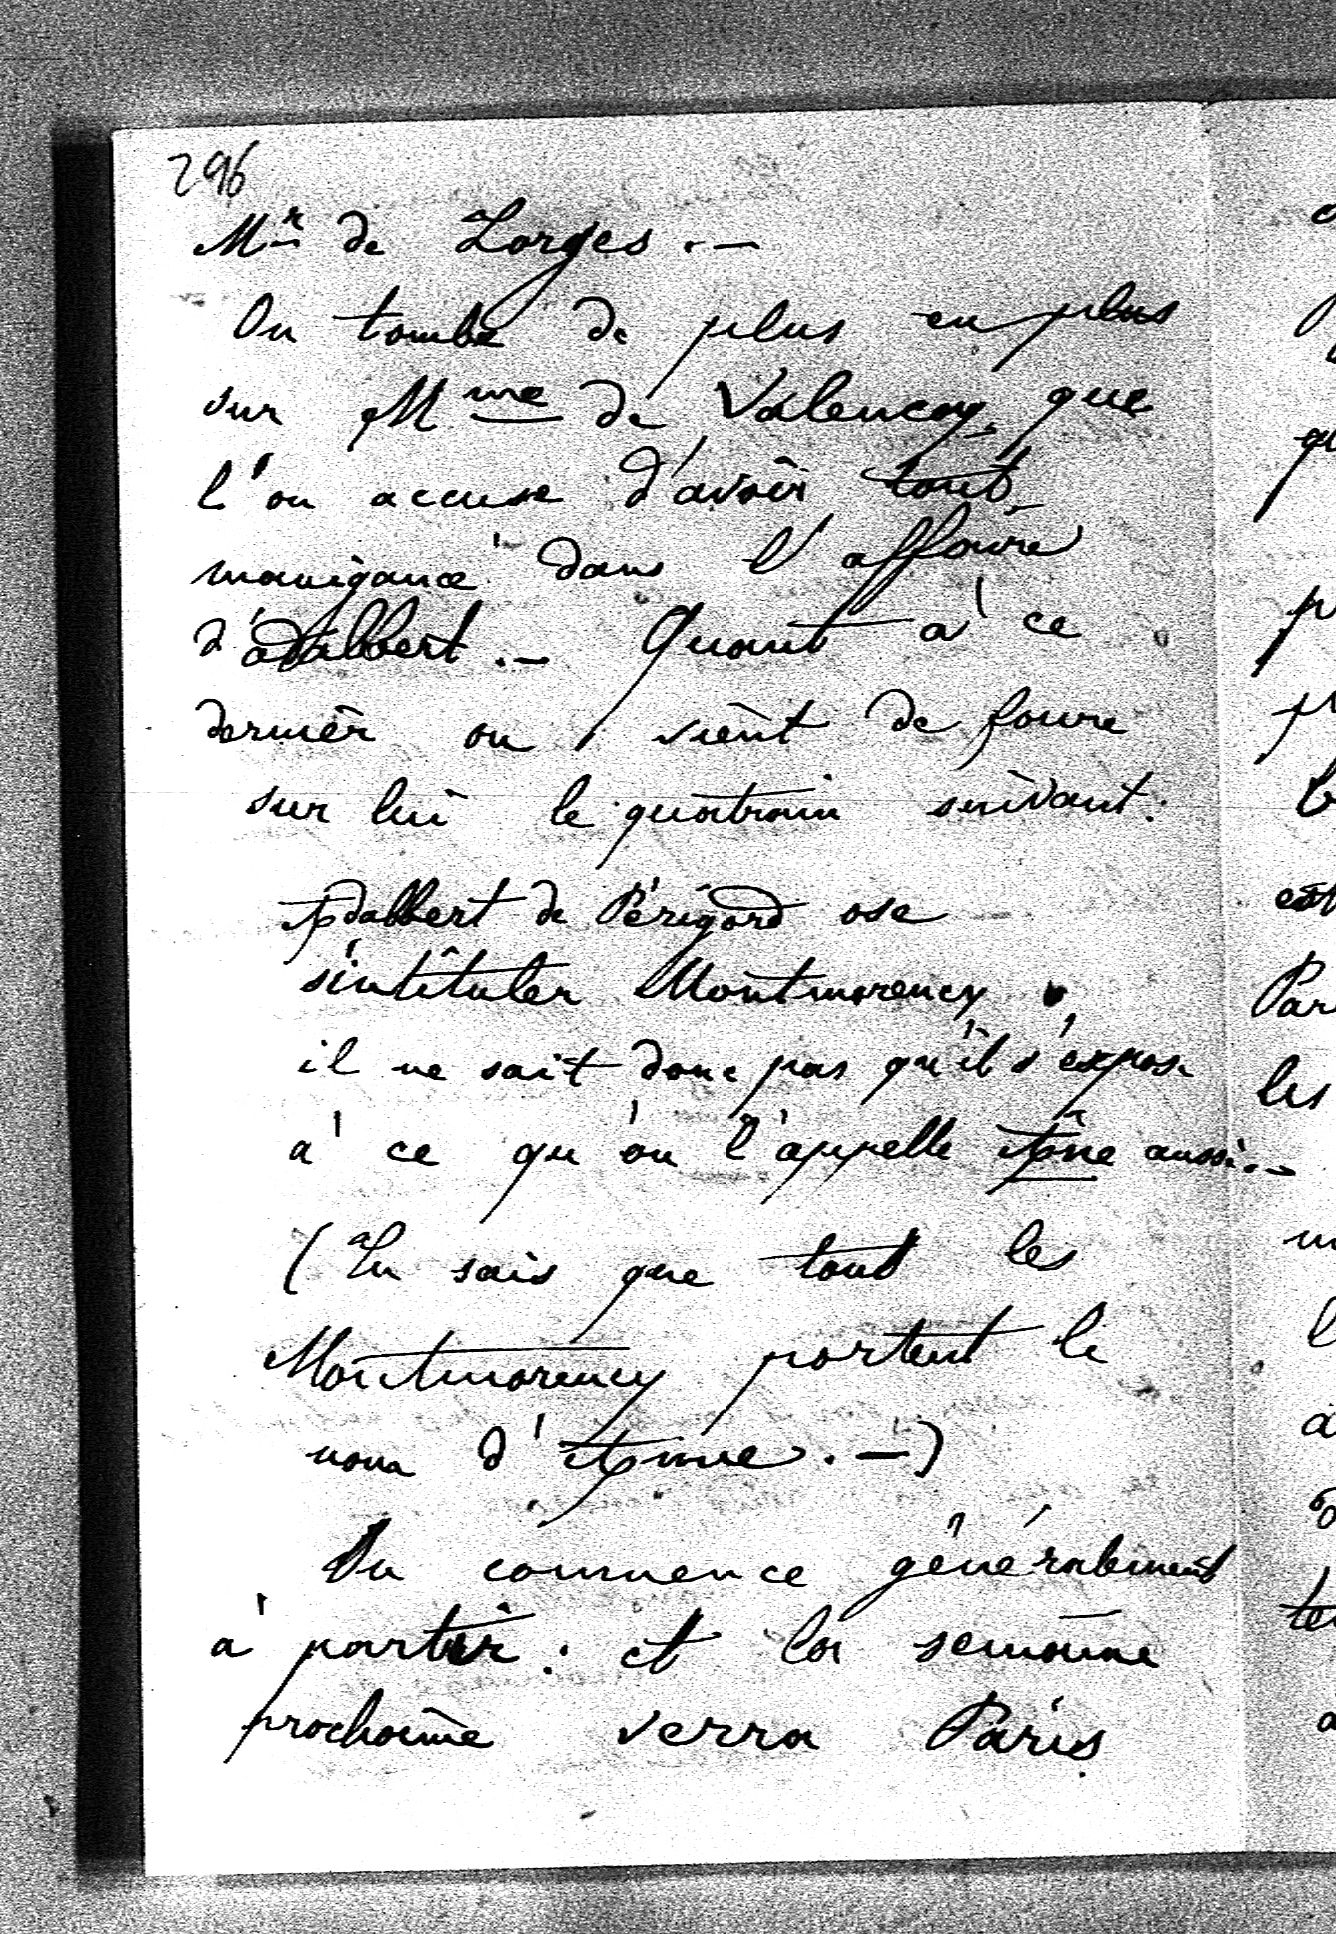 296
Mr de Lorges. —
On tombe de plus en plus
sur Mme de Valencay, que
l'on accuse d'avoir tout
manigancé dans l'affaire
d'adalbert. — Quant à ce
dernier on vient de faire
sur lui le quatrain suivant:
Adalbert de Périgord ose
s'intituler Montmorency,
il ne sait donc pas qu'il s'expose
à ce qu'on l'appelle Ane aussi. —
(Tu sais que tous les
Montmorency portent le
nom d'Anne. —)
On commence généralement
à partir: et la semaine
prochaine verra Paris